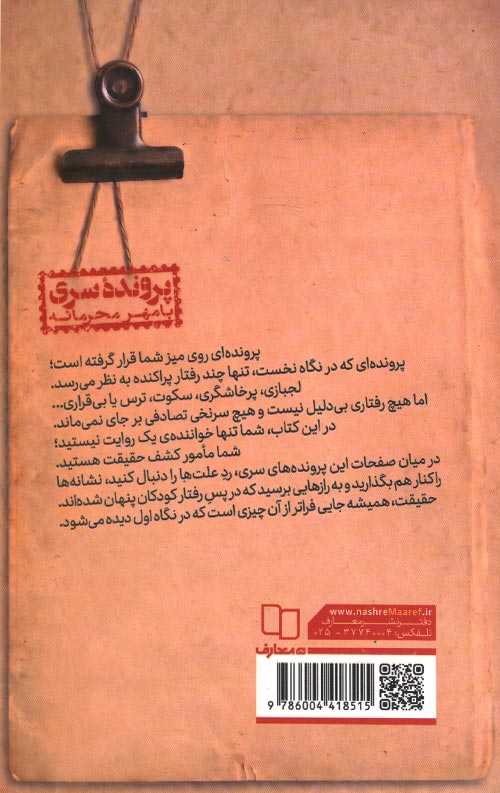 پروندهٔ سری
با مهر محرمانه
پرونده‌ای روی میز شما قرار گرفته است؛
پرونده‌ای که در نگاه نخست، تنها چند رفتار پراکنده به نظر می‌رسد.
لجبازی، پرخاشگری، سکوت، ترس یا بی‌قراری...
اما هیچ رفتاری بی‌دلیل نیست و هیچ سرنخی تصادفی بر جای نمی‌ماند.
در این کتاب، شما تنها خواننده‌ی یک روایت نیستید؛
شما مأمور کشف حقیقت هستید.
در میان صفحات این پرونده‌های سری، ردِ علت‌ها را دنبال کنید، نشانه‌ها
را کنار هم بگذارید و به رازهایی برسید که در پسِ رفتار کودکان پنهان شده‌اند.
حقیقت، همیشه جایی فراتر از آن چیزی است که در نگاه اول دیده می‌شود.
www.nashreMaaref.ir
دفتر نشر معارف
تلفکس: ۳۷۷۴۰۰۰۴ - ۰۲۵
معارف
9 786004 418515